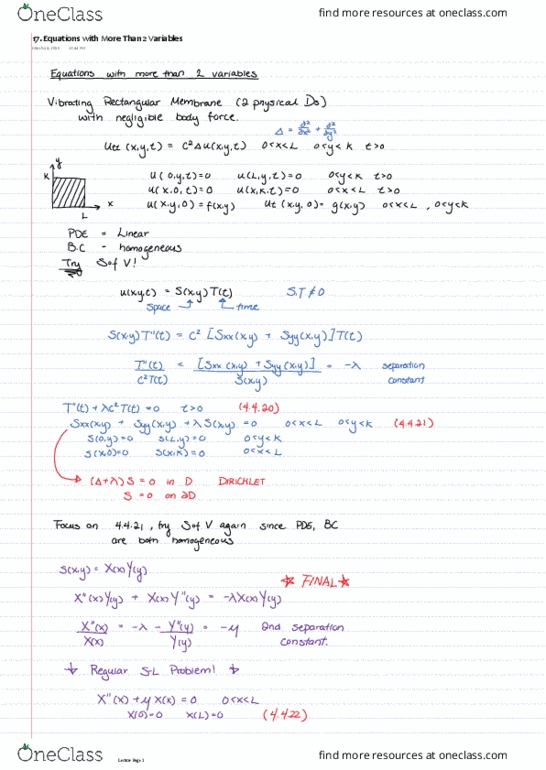 OneClass
find more resources at oneclass.com
17. Equations with More Than 2 Variables
Equations with more than 2 variables
Vibrating Rectangular Membrane (2 physical Ds)
with negligible body force.
Δ = ∂²/∂x² + ∂²/∂y²
Utt (x,y,t) = C²Δu(x,y,t) 0<x<L 0<y<K t>0
y
K
L
x
u(0,y,t)=0 u(L,y,t)=0 0<y<K t>0
u(x,0,t)=0 u(x,K,t)=0 0<x<L t>0
u(x,y,0)=f(x,y) Ut (x,y,0)= g(x,y) 0<x<L, 0<y<K
PDE = Linear
B.C - homogeneous
Try S of V!
u(x,y,t) = S(x,y)T(t) S.T ≠ 0
space time
S(x,y)T"(t) = C² [Sxx(x,y) + Syy(x,y)]T(t)
T"(t)/C²T(t) = [Sxx(x,y) + Syy(x,y)]/S(x,y) = -λ separation
constant
T"(t) + λC²T(t) = 0 t>0 (4.4.20)
Sxx(x,y) + Syy(x,y) + λS(x,y) = 0 0<x<L 0<y<K (4.4.21)
S(0,y)=0 S(L,y)=0 0<y<K
S(x,0)=0 S(x,K)=0 0<x<L
(Δ+λ)S = 0 in D DIRICHLET
S = 0 on ∂D
Focus on 4.4.21, try S of V again since PDE, BC
are both homogeneous
S(x,y) = X(x)Y(y)
☆ FINAL ☆
X"(x)Y(y) + X(x)Y"(y) = -λX(x)Y(y)
X"(x)/X(x) = -λ - Y"(y)/Y(y) = -μ 2nd separation
constant.
↓ Regular S-L Problem! ↓
X"(x) + μX(x) = 0 0<x<L
X(0)=0 X(L)=0 (4.4.22)
OneClass
Lecture Page 1
find more resources at oneclass.com